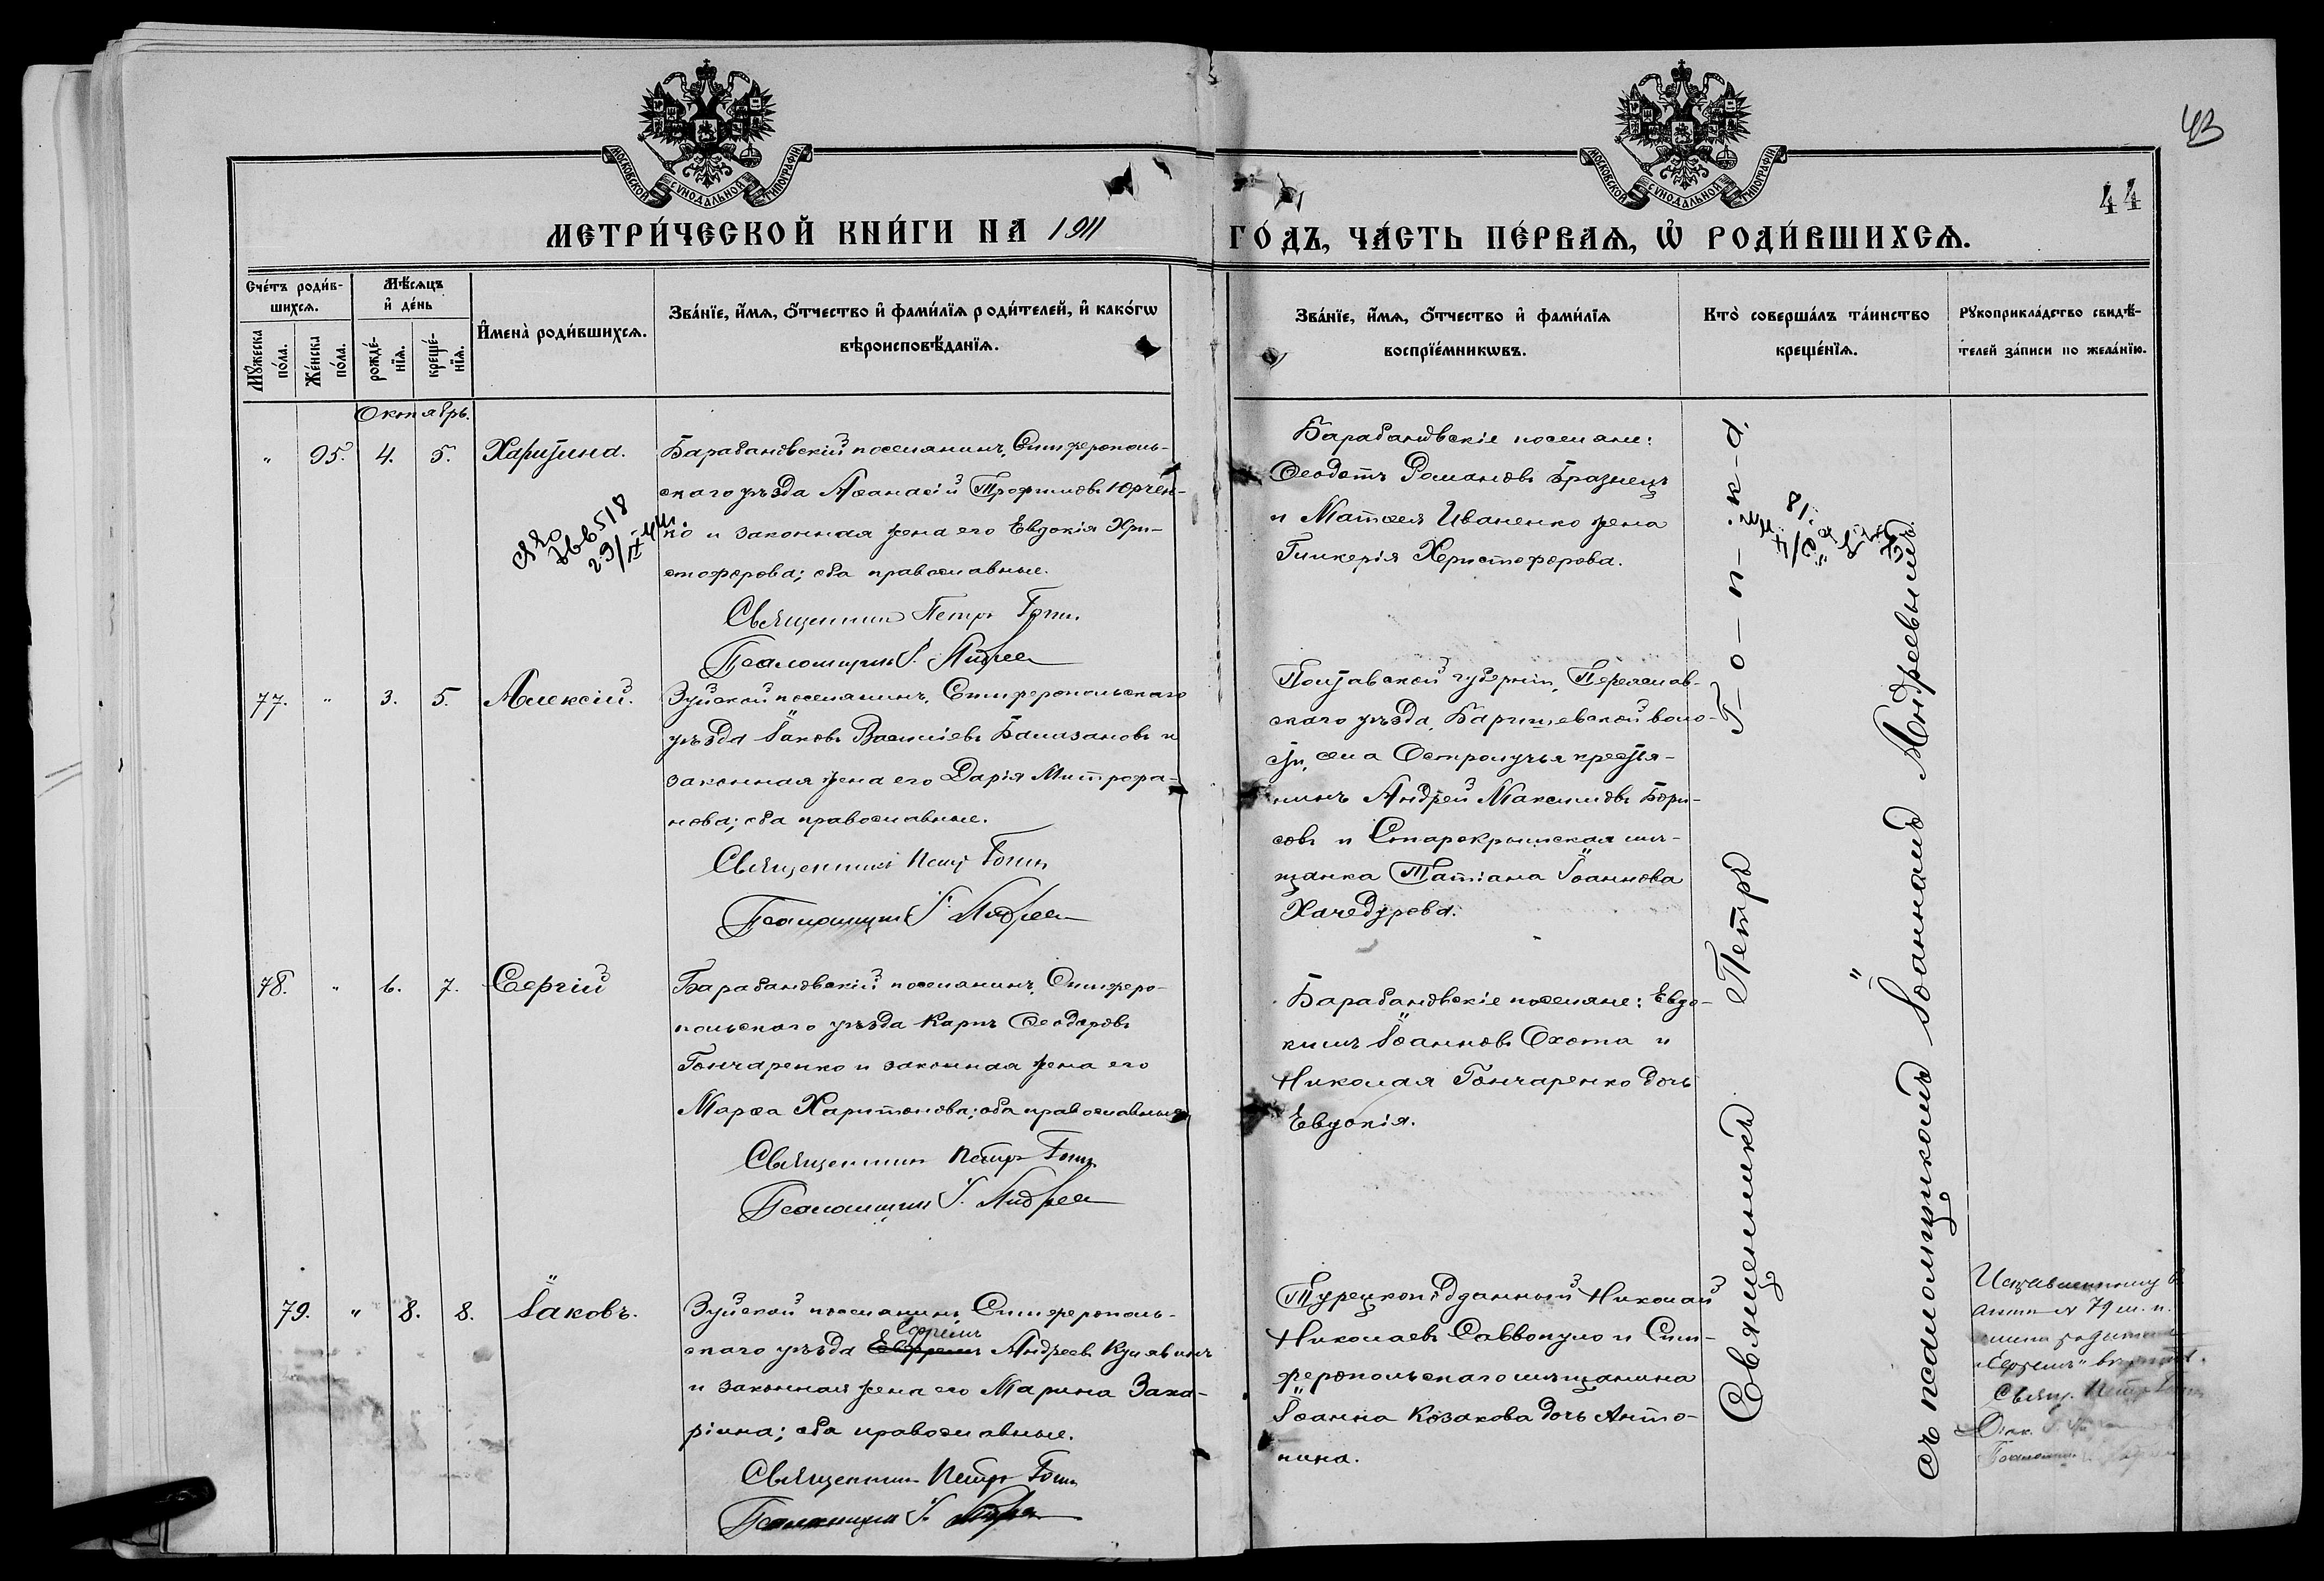 43
44
МОСКОВСКОЙ СѴНОДАЛЬНОЙ ТИПОГРАФІИ
МОСКОВСКОЙ СѴНОДАЛЬНОЙ ТИПОГРАФІИ
МЕТРИ́ЧЕСКОЙ КНИ́ГИ НА 1911
ГО́ДЪ, ЧА́СТЬ ПЕ́РВАѦ, Ѡ РОДИ́ВШИХСѦ.
Сче́тъ роди́в-
шихсѧ.
Мѣ́сѧцъ
и де́нь
Мꙋ́жеска
по́ла.
Же́нска
по́ла.
рожде́-
нїѧ.
креще́-
нїѧ.
Имена̀ роди́вшихсѧ.
Зва́нїе, и́мѧ, о́тчество и фами́лїѧ роди́телей, и како́гѡ
вѣроисповѣ́данїѧ.
Зва́нїе, и́мѧ, о́тчество и фами́лїѧ
воспрїе́мникѡвъ.
Кто̀ соверша́лъ та́инство
креще́нїѧ.
Рꙋкоприкла́дство свидѣ́-
телей за́писи по жела́нїю.
Октябрь.
" 95. 4. 5. Харитина.
Барабановскій поселянинъ, Симферополь-
скаго уѣзда Аѳанасій Трофимовъ Юрчен-
ко и законная жена его Евдокія Хри-
стофорова; оба православные.
Священникъ Петръ
Псаломщикъ І. Андреев
Барабановскіе поселяне:
Ѳеодотъ Романовъ Бразнецъ
и Матѳея Иваненко жена
Гликерія Христофорова.
77. " 3. 5. Алексій.
Зуйской поселянинъ, Симферопольскаго
уѣзда Іаковъ Васильевъ Балазановъ и
законная жена его Дарія Митрофа-
нова; оба православные.
Священникъ Петръ
Псаломщикъ І. Андреев
Полтавской губерніи, Переяслав-
скаго уѣзда, Барышевской воло-
сти, села Остролучья крестья-
нинъ Андрей Максимовъ Бори-
совъ и Старокрымская мѣ-
щанка Татіана Іоаннова
Хачедурова.
78. " 6. 7. Сергій
Барабановскій поселянинъ, Симферо-
польскаго уѣзда Карпъ Ѳеодоровъ
Гончаренко и законная жена его
Марѳа Харитонова; оба православные
Священникъ Петръ
Псаломщикъ І. Андреев
Барабановскіе поселяне: Евдо-
кимъ Іоанновъ Охота и
Николая Гончаренко дочь
Евдокія.
79. " 8. 8. Іаковъ.
Зуйской поселянинъ, Симферополь-
Ефремъ
скаго уѣзда Андреевъ Кулявинъ
и законная жена его Марина Заха-
ріина; оба православные.
Священникъ Петръ
Псаломщикъ І.
Турецкоподданный Николай
Николаевъ Саввопуло и Сим-
феропольскаго мѣщанина
Іоанна Козакова дочь Анто-
нина.
Священникъ Петръ Г-о-п-к-а,
съ псаломщикомъ Іоанномъ Андреевымъ.
79 м. п.
"Ефремъ" вѣрить.
Свящ. Петръ